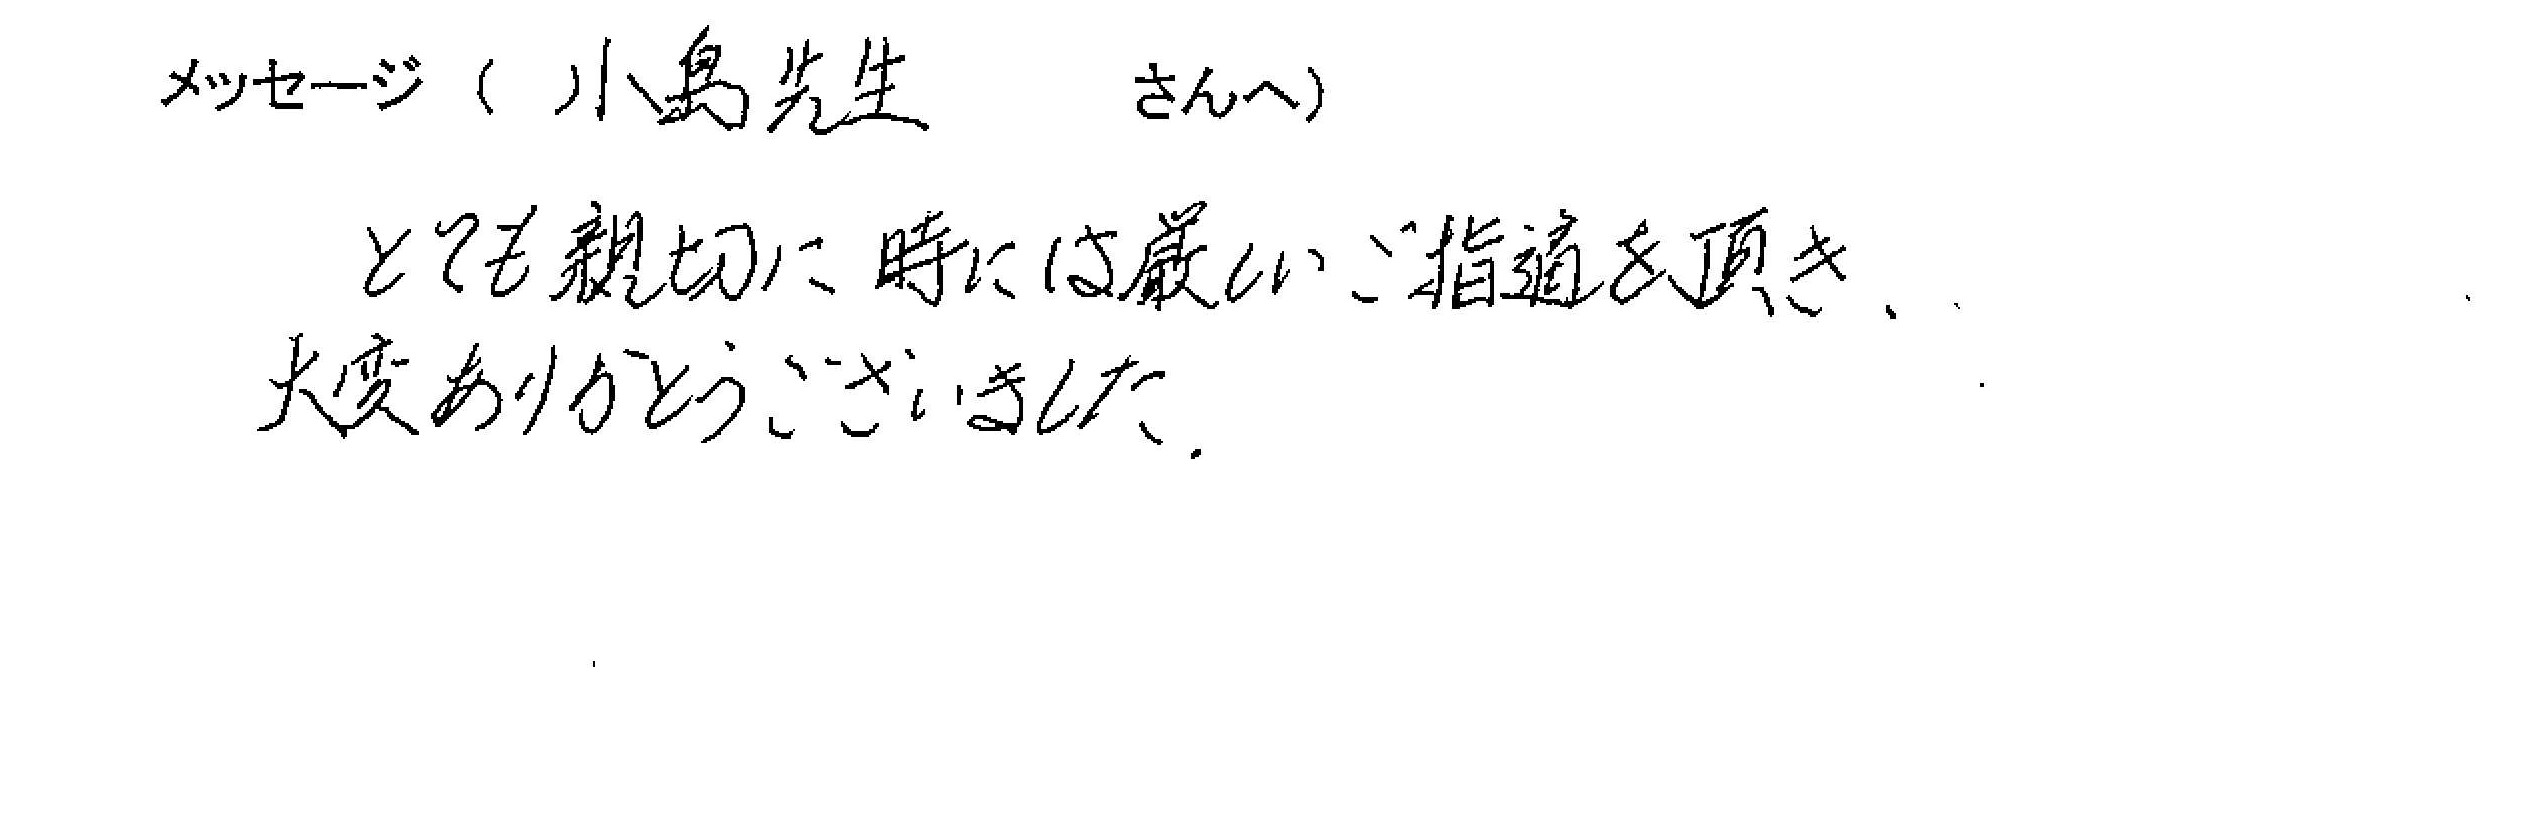 メッセージ ( 小島先生 さんへ)
とても親切に時には厳しいご指適を頂き、
大変ありがとうございました.